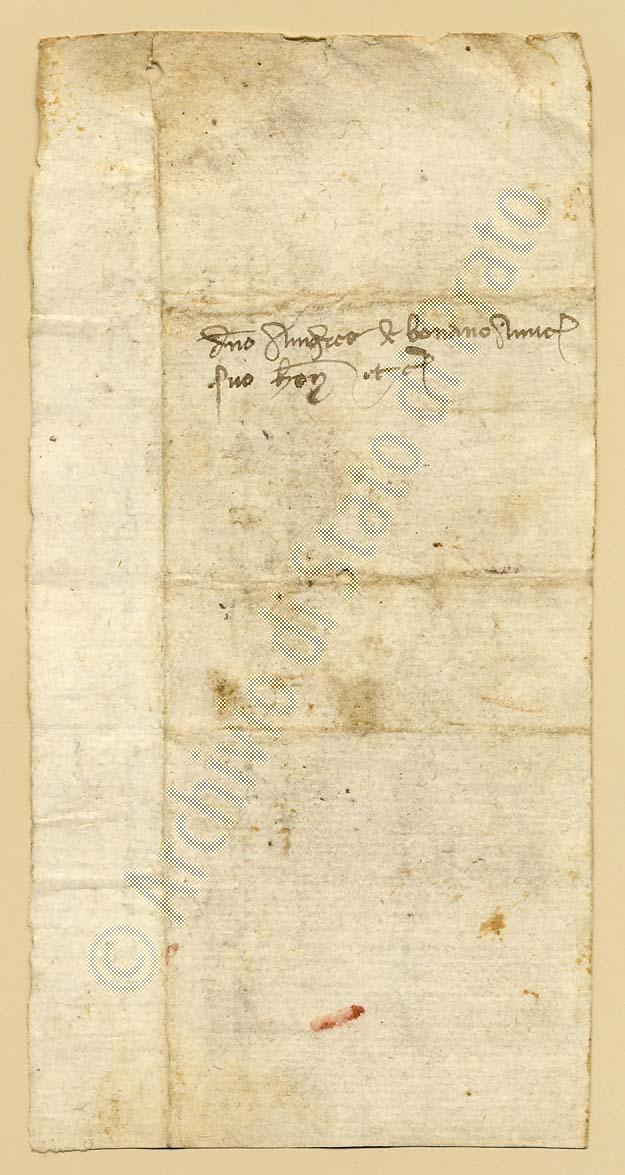 dno Andree de bonano Amico
suo hon et c
© Archivio di Stato di Prato